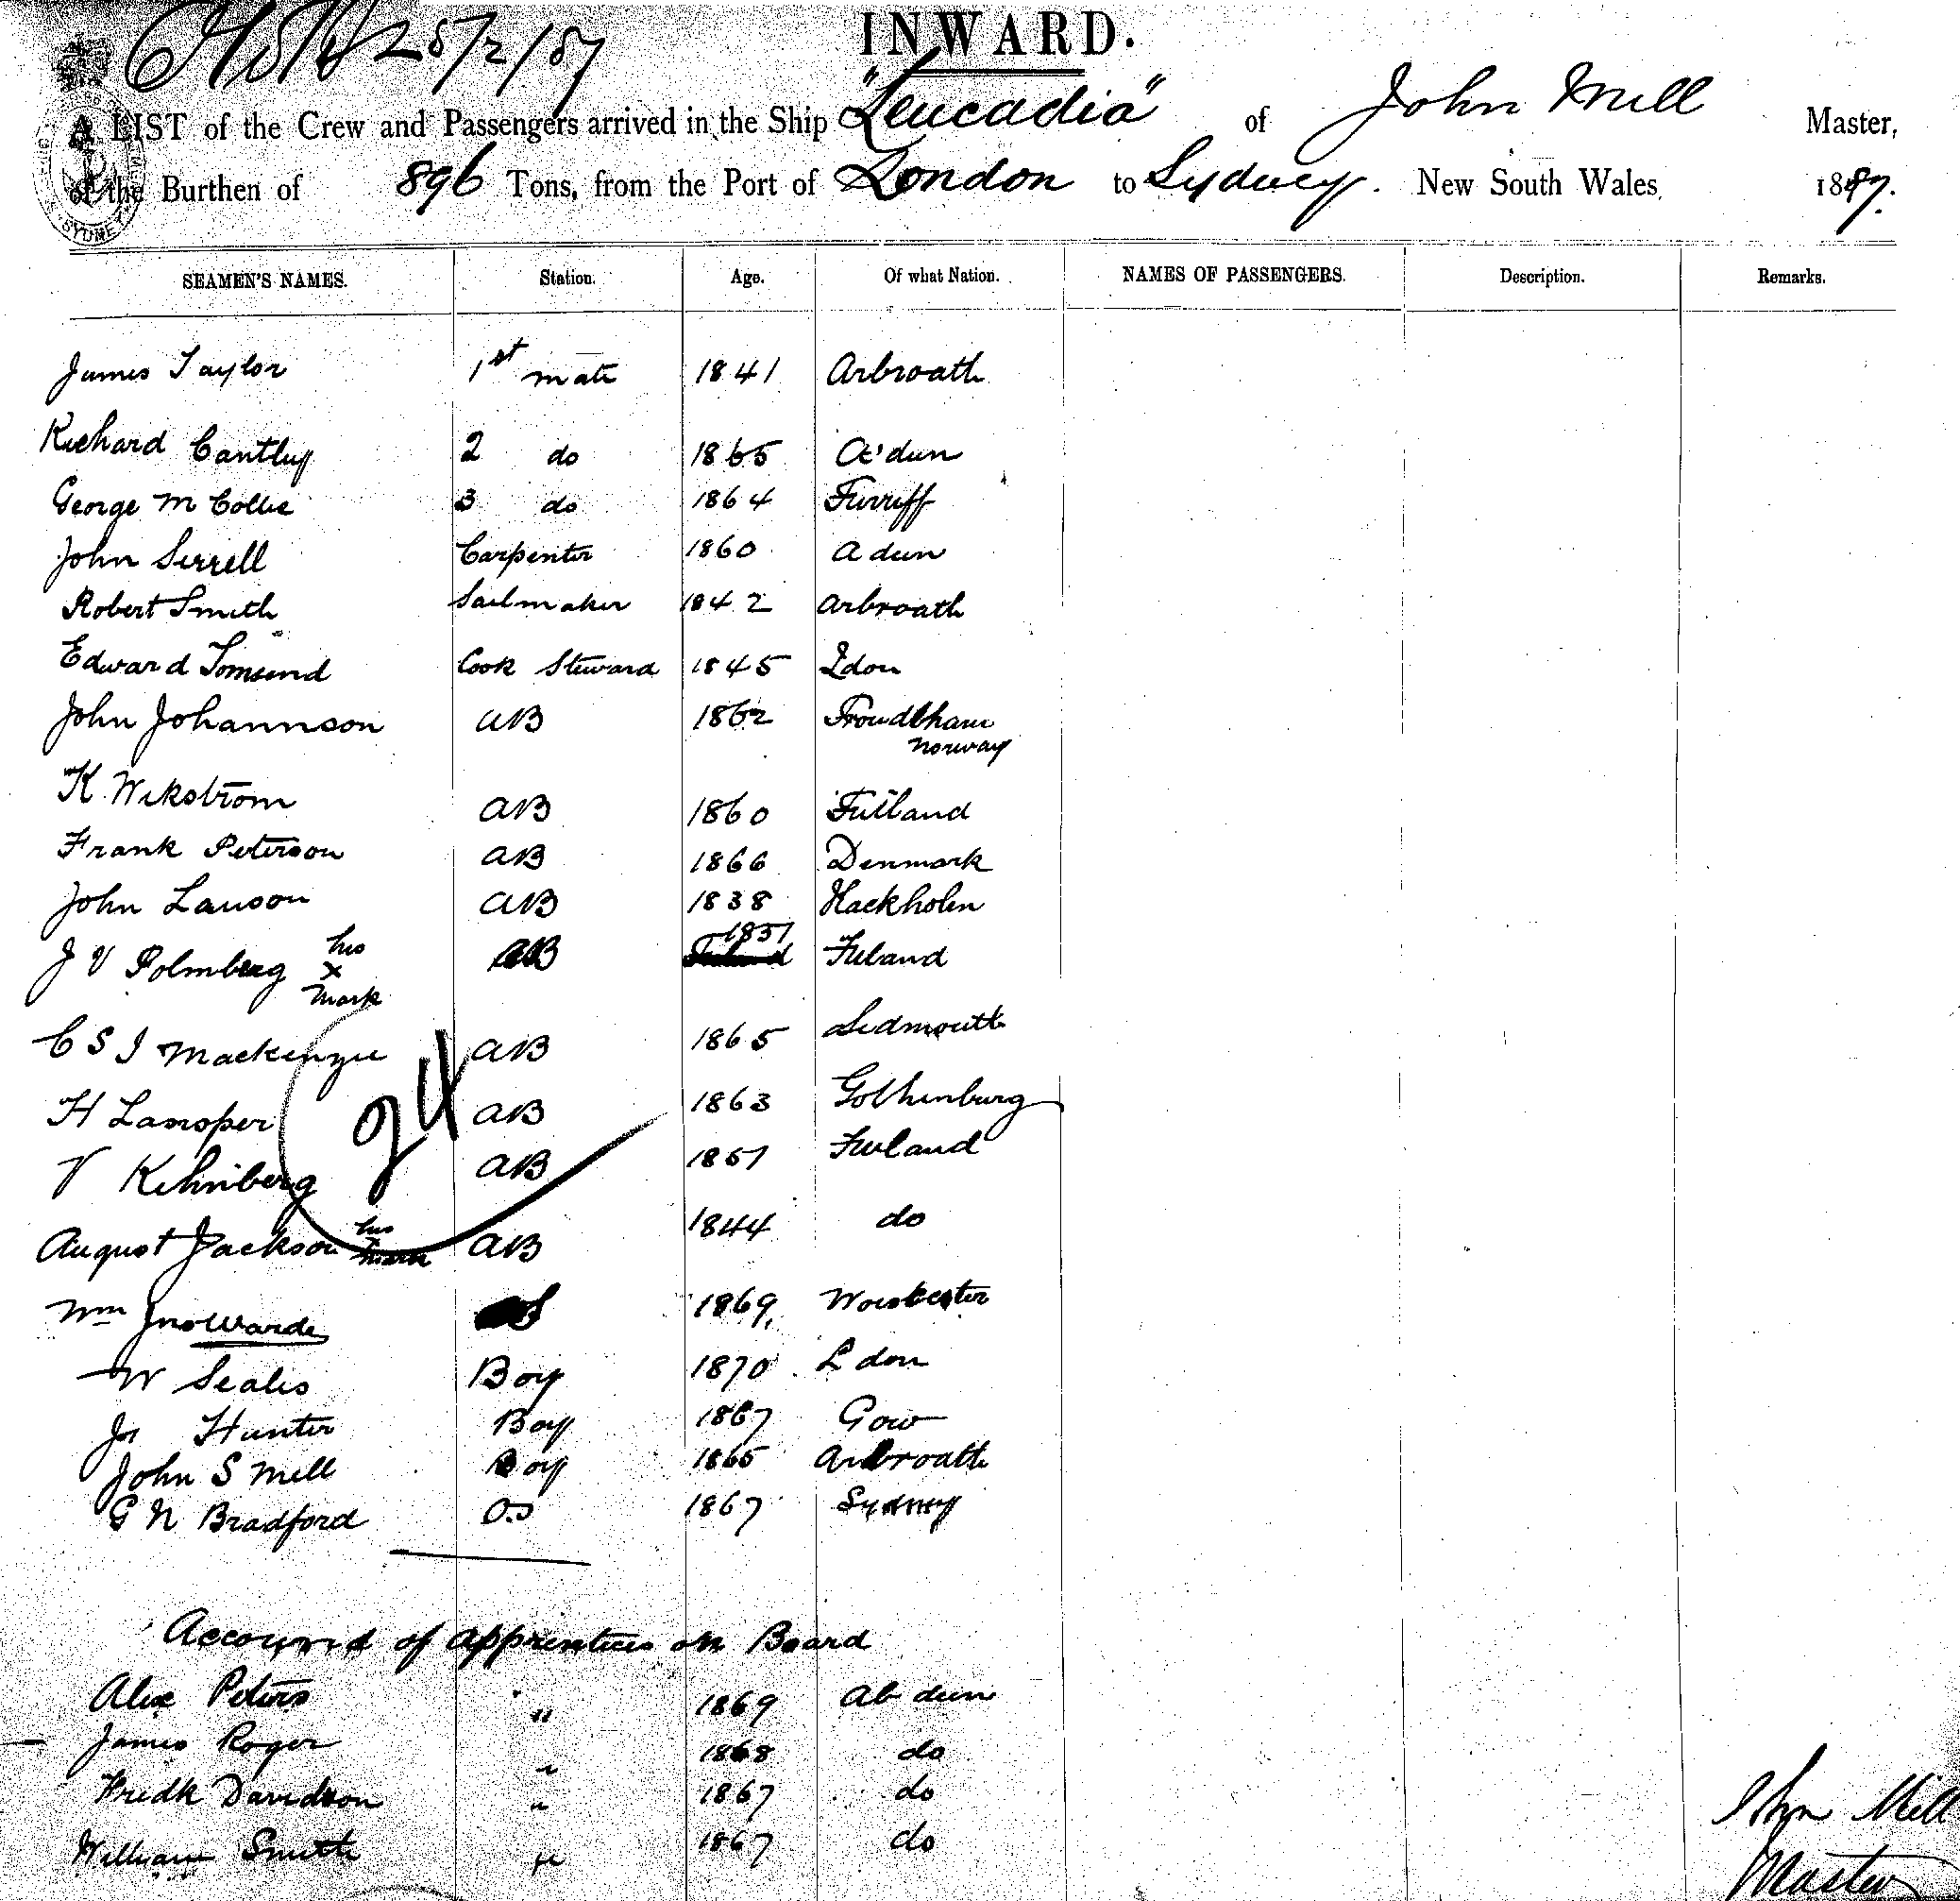 28/2/87
INWARD.
A LIST of the Crew and Passengers arrived in the Ship "Leucadia" of John Mill Master,
of the Burthen of 896 Tons, from the Port of London to Sydney. New South Wales, 1887.
SEAMEN'S NAMES. Station. Age. Of what Nation. NAMES OF PASSENGERS. Description. Remarks.
James Taylor 1st mate 1841 Arbroath
Richard Cantlay 2 do 1865 A'dun
George M Collie 3 do 1864 Turriff
John Serrell Carpenter 1860 Adeen
Robert Smith Sailmaker 1842 Arbroath
Edward Tomsend Cook Steward 1845 Ldon
John Johannson AB 1862
Norway
K Wikstrom AB 1860
Frank Peterson AB 1866 Denmark
John Lawson AB 1838
his 1851
J V Polmberg x AB
mark
C S J Mackenzie AB 1865 Sidmouth
24
H AB 1863 Gothenburg
V AB
his
August Jackson x AB 1844 do
mark
Wm Jno Warde 1869
W Scales Boy 1870 L don
Jn Hunter Boy 1867 Gow
John S Mill Boy 1865 Arbroath
G N Bradford O.S 1867 Sydney
Account of apprentices on Board
Alex Peters " 1869 Ab deen
James Roger " 1868 do
Fredk Davidson " 1867 do
William Smith " 1867 do
John Mill
Master